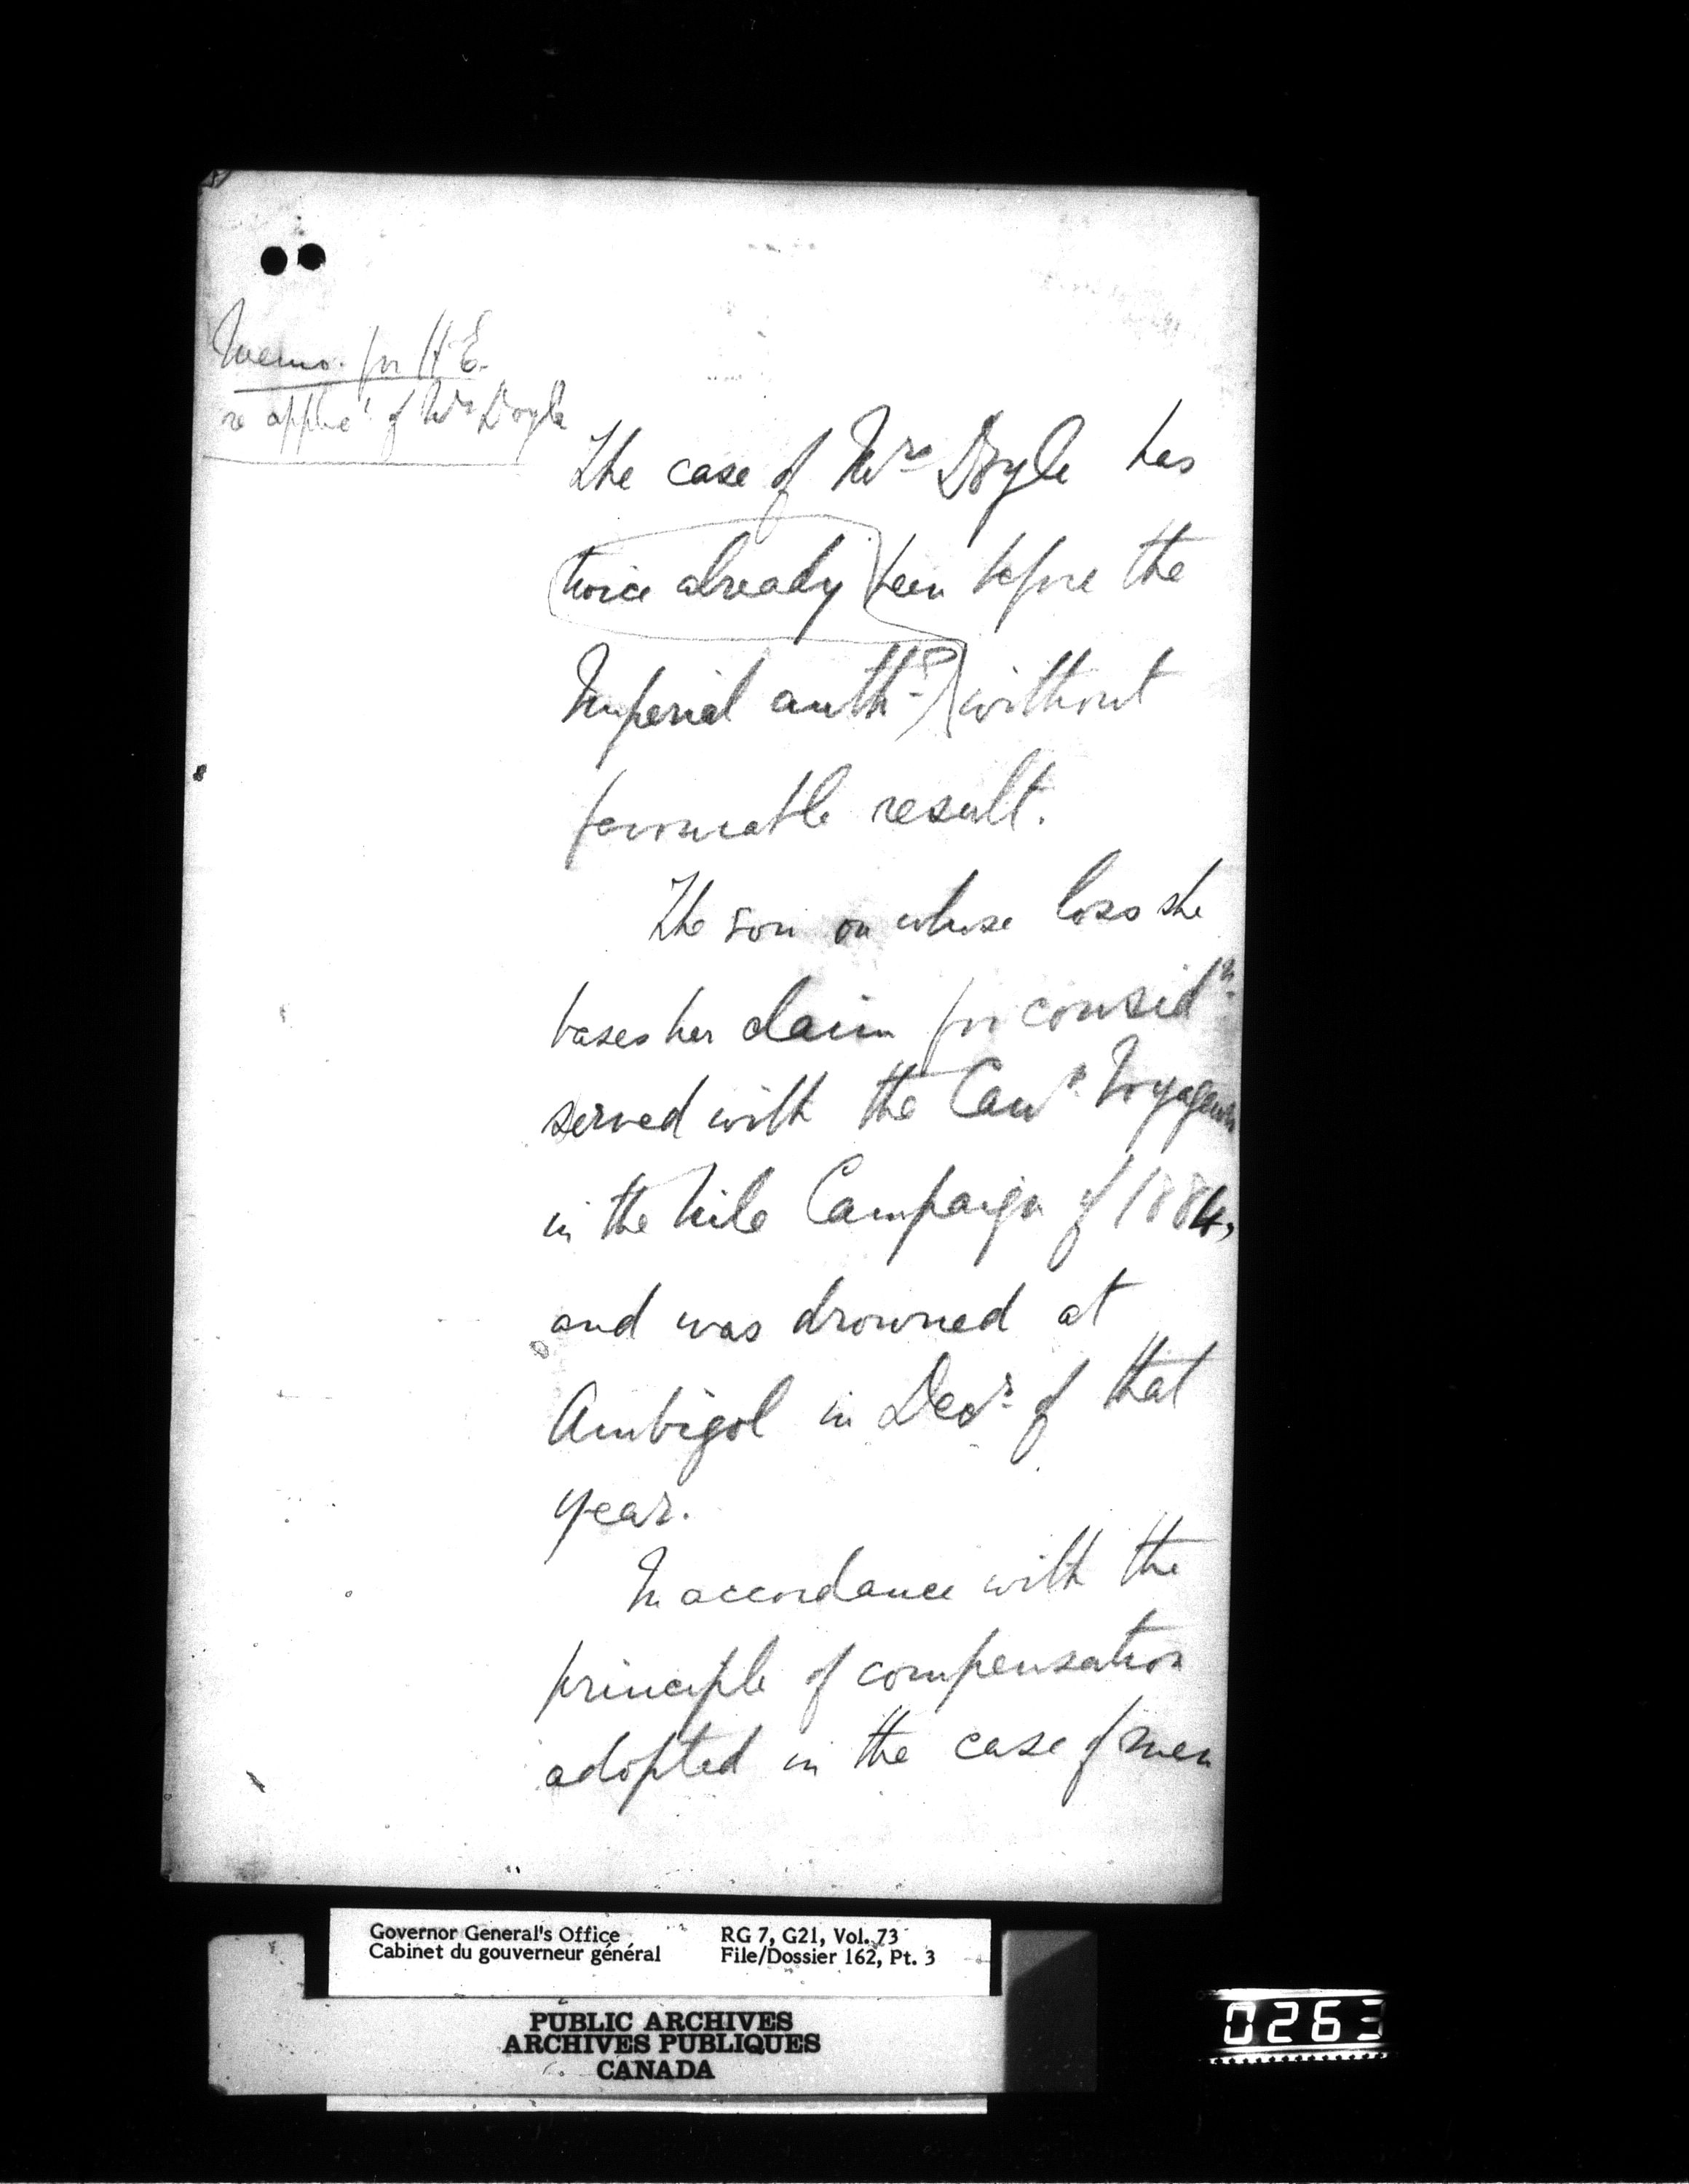 Memo. for H.E.
re applicⁿ of Mrs Doyle
The case of Mrs Doyle has
twice already been before the
Imperial authˢ without
favourable result.
The son on whose loss she
bases her claim for considⁿ.
served with the Canⁿ Voyageurs
in the Nile Campaign of 1884,
and was drowned at
Ambigol in Decʳ of that
year.
In accordance with the
principle of compensation
adopted in the case of men
Governor General's Office RG 7, G21, Vol. 73
Cabinet du gouverneur général File/Dossier 162, Pt. 3
PUBLIC ARCHIVES
ARCHIVES PUBLIQUES
CANADA
0263